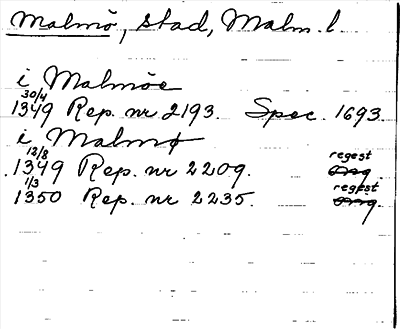 Malmö, stad, Malm. l.
i Malmöe
30/4
1349 Rep. nr 2193. Spec. 1693.
i Malmø
12/8 regest
1349 Rep. nr 2209. orig.
1/3 regest
1350 Rep. nr 2235. orig.